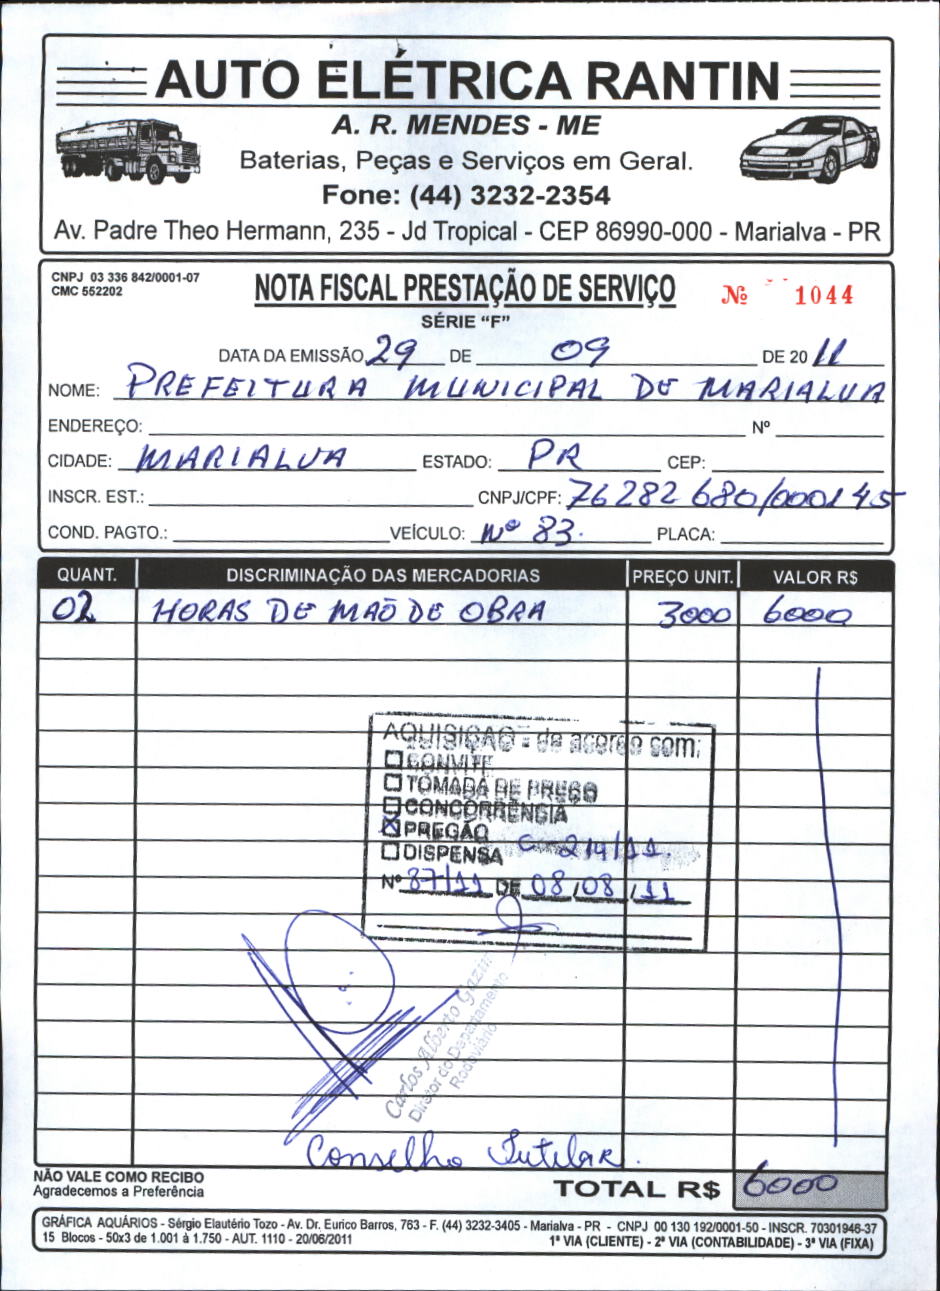 AUTO ELÉTRICA RANTIN
A. R. MENDES - ME
Baterias, Peças e Serviços em Geral.
Fone: (44) 3232-2354
Av. Padre Theo Hermann, 235 - Jd Tropical - CEP 86990-000 - Marialva - PR
CNPJ 03 336 842/0001-07
CMC 552202
NOTA FISCAL PRESTAÇÃO DE SERVIÇO
Nº 1044
SÉRIE "F"
DATA DA EMISSÃO 29 DE 09 DE 2011
NOME: PREFEITURA MUNICIPAL DE MARIALVA
ENDEREÇO: Nº
CIDADE: MARIALVA ESTADO: PR CEP:
INSCR. EST.: CNPJ/CPF: 76 282 680/000145
COND. PAGTO.: VEÍCULO: nº 83. PLACA:
QUANT. DISCRIMINAÇÃO DAS MERCADORIAS PREÇO UNIT. VALOR R$
02 HORAS DE MAÕ DE OBRA 3000 6000
AQUISIÇÃO - de acordo com:
CONVITE
TOMADA DE PREÇO
CONCORRÊNCIA
PREGÃO
DISPENSA C 214/11
Nº 87/11 DE 08/08/11
Carlos Alberto Gazin
Diretor do Departamento
Rodoviário
Conselho Tutelar.
NÃO VALE COMO RECIBO
Agradecemos a Preferência
TOTAL R$ 6000
GRÁFICA AQUÁRIOS - Sérgio Elautério Tozo - Av. Dr. Eurico Barros, 763 - F. (44) 3232-3405 - Marialva - PR - CNPJ 00 130 192/0001-50 - INSCR. 70301946-37
15 Blocos - 50x3 de 1.001 à 1.750 - AUT. 1110 - 20/06/2011 1ª VIA (CLIENTE) - 2ª VIA (CONTABILIDADE) - 3ª VIA (FIXA)